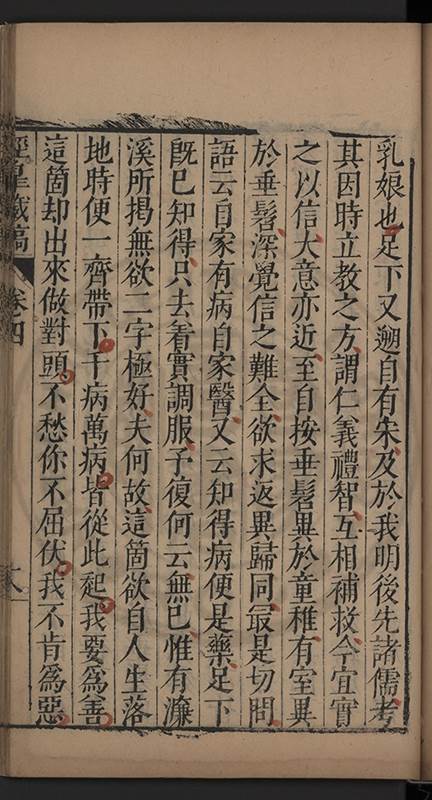 乳娘也足下又遡自有朱及於我明後先諸儒考
其因時立教之方謂仁義禮智互相補救今宜實
之以信大意亦近至自按垂髫異於童稚有室異
於垂髫深覺信之難全欲求返異歸同最是切問
語云自家有病自家醫又云知得病便是藥足下
旣已知得只去着實調服予復何云無已惟有濂
溪所揭無欲二字極好夫何故這箇欲自人生落
地時便一齊帶下千病萬病皆從此起我要爲善
這箇却出來做對頭不愁你不屈伏我不肯爲惡
涇臯藏稿 卷四